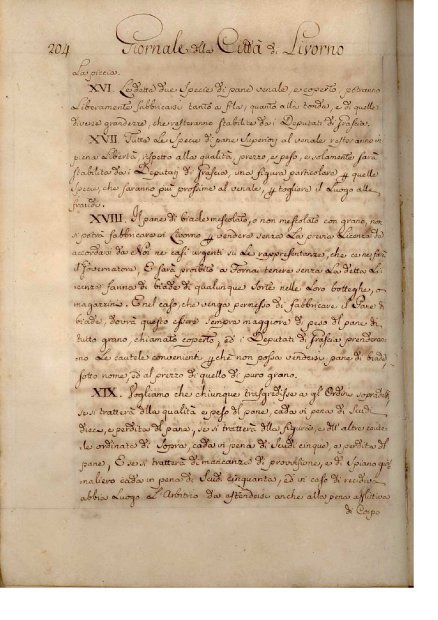 204 Giornale della Città di Livorno
La piccia.
XVI. Le dette due Specie di pane venale, e coperto, potranno
Liberamente fabbricarsi tanto a fila, quanto alla tonda, e di quelle
diverse grandezze, che resteranno stabilite da i Deputati di Grascia.
XVII. Tutte le Specie di pane Superiori al venale resteranno in
piena Libertà, rispetto alla qualità, prezzo, e peso, e solamente sarà
stabilita da i Deputati di Grascia, una figura particolare per quelle
Specie, che saranno più prossime al venale, per togliere il Luogo alle
fraudi.
XVIII. Il pane di biade mescolato, o non mescolato con grano, non
si potrà fabbricare in Livorno per vendere senza La previa Licenza da
accordarsi da Noi ne casi urgenti su Le rappresentanze, che ce ne farà
il Governatore, E sarà proibito a Fornai tenere senza La detta Li-
cenza farina di biade di qualunque Sorte nelle Loro botteghe, o
magazzini. E nel caso, che venga permesso di fabbricare il Pane di
biade, dovrà questo essere Sempre maggiore di peso del pane di
tutto grano, chiamato coperto, ed i Deputati di Grascia prenderan-
no Le cautele convenienti perche non possa vendersi pane di biade
sotto nome, ed al prezzo di quello di puro grano.
XIX. Vogliamo che chiunque trasgredisse a gli Ordini sopradetti
se si tratterà della qualità e peso del pane, cada in pena di Scudi
diece, e perdita del pane, se si tratterà della figura, e dell' altre cautele
ordinate di Sopra cada in pena di Scudi cinque, e perdita del
pane, E se si tratterà di mancanza di provvisione, e di Spiano gior-
naliero cada in pena di Scudi cinquanta, ed in caso di recidiva
abbia Luogo L'Arbitrio da estendersi anche alla pena afflittiva
di Corpo